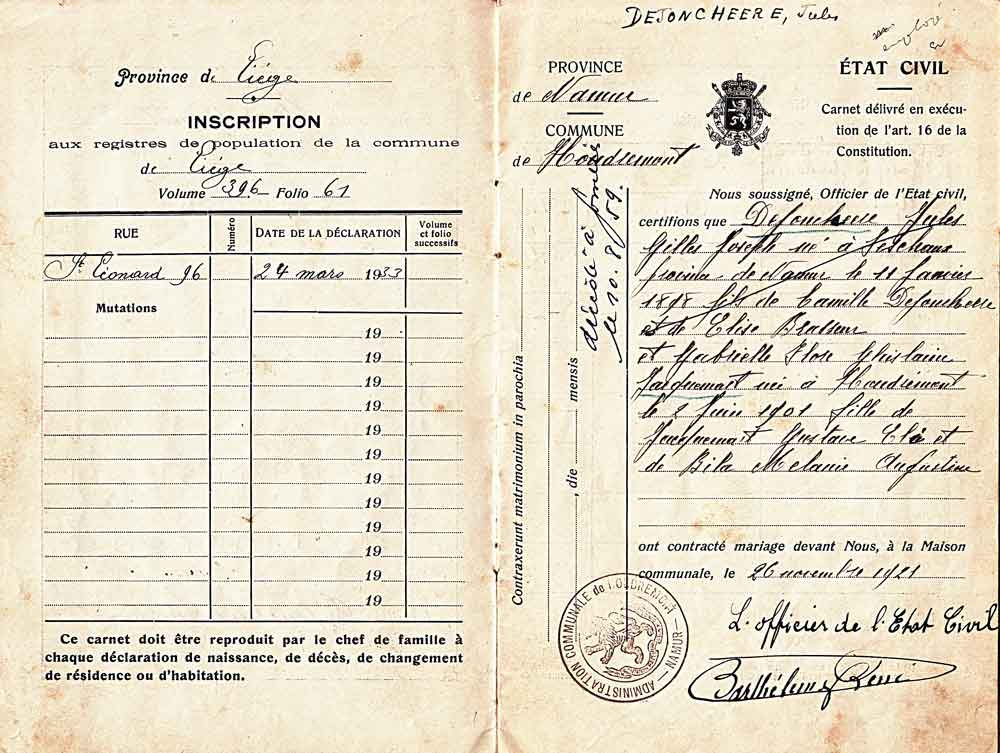 Province de Liége
INSCRIPTION
aux registres de population de la commune
de Liége
Volume 396 Folio 61
RUE Numéro DATE DE LA DÉCLARATION Volume et folio successifs
St Léonard 96 24 mars 1933
Mutations
19
19
19
19
19
19
19
19
19
19
19
19
Ce carnet doit être reproduit par le chef de famille à
chaque déclaration de naissance, de décès, de changement
de résidence ou d'habitation.
DEJONCHEERE, Jules
employé
PROVINCE
de Namur
COMMUNE
de Houdremont
ÉTAT CIVIL
Carnet délivré en exécu-
tion de l'art. 16 de la
Constitution.
Contraxerunt matrimonium in parochia
, die mensis
décédé à
le 10.8.59.
Nous soussigné, Officier de l'Etat civil,
certifions que Dejoncheere Jules
Gilles Joseph né à
province de Namur le 11 janvier
1898 fils de Camille Dejoncheere
et de Elise Brasseur
et Gabrielle Flore Ghislaine
Jacquemart née à Houdremont
le 2 juin 1901 fille de
Jacquemart Gustave et
de Bila Melanie Augustine
ont contracté mariage devant Nous, à la Maison
communale, le 26 novembre 1921
L'officier de l'Etat Civil
Barthélemy René
ADMINISTRATION COMMUNALE de HOUDREMONT — NAMUR —